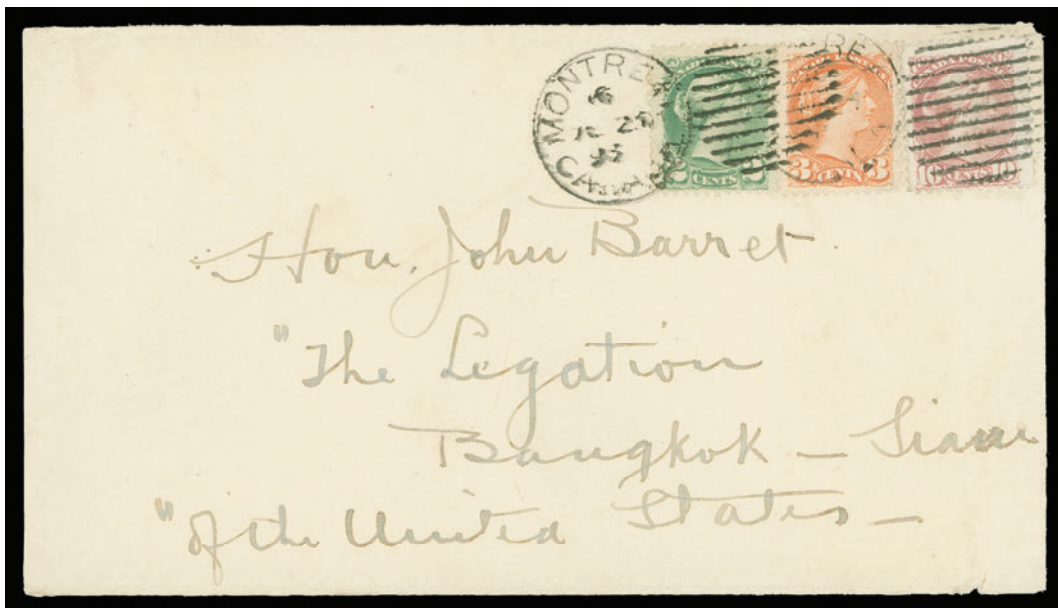 MONTRE
CANADA
2 CENTS 2
CANADA POSTAGE
3 CENTS 3
RE
CANADA POSTAGE
10 CENTS 10
Hon. John Barret.
"The Legation
Bangkok – Siam
"of the United States –